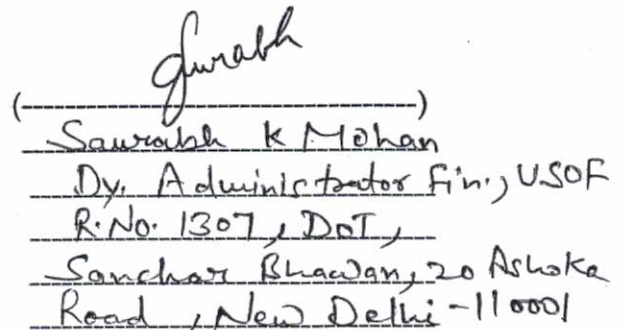 Saurabh
(--------------------------------)
Saurabh K Mohan
Dy. Administrator Fin., USOF
R.No. 1307, DoT,
Sanchar Bhawan, 20 Ashoka
Road, New Delhi-110001